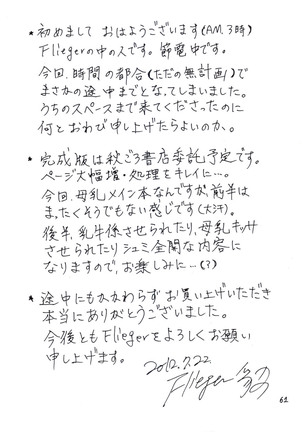 * 初めまして おはようございます(AM.3時)
Fliegerの中の人です。節電中です。
今回、時間の都合(ただの無計画)で
まさかの途中までとなってしまいました。
うちのスペースまで来てくださったのに
何とおわび申し上げたらよいのか。
* 完成版は秋ごろ書店委託予定です。
ページ大幅増・処理をキレイに…。
今回、母乳メイン本なんですが、前半は
まったくそうでもない感じです(大汗)。
後半、乳牛係させられたり、母乳キッサ
させられたりシュミ全開な内容に
なりますので、お楽しみに…(?)
* 途中にもかかわらずお買い上げいただき
本当にありがとうございました。
今後ともFliegerをよろしくお願い
申し上げます。
2012.7.22.
Flieger
62